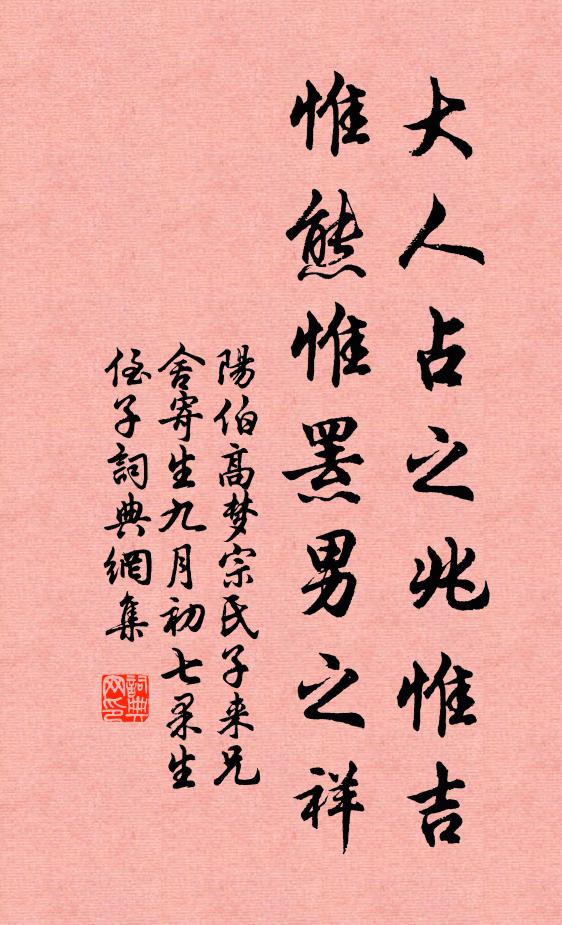 大人占之兆惟吉
惟熊惟罴男之祥
陽伯高梦宗氏子来兄
舍寄生九月初七果生
侄子詞典網集
詞典网印